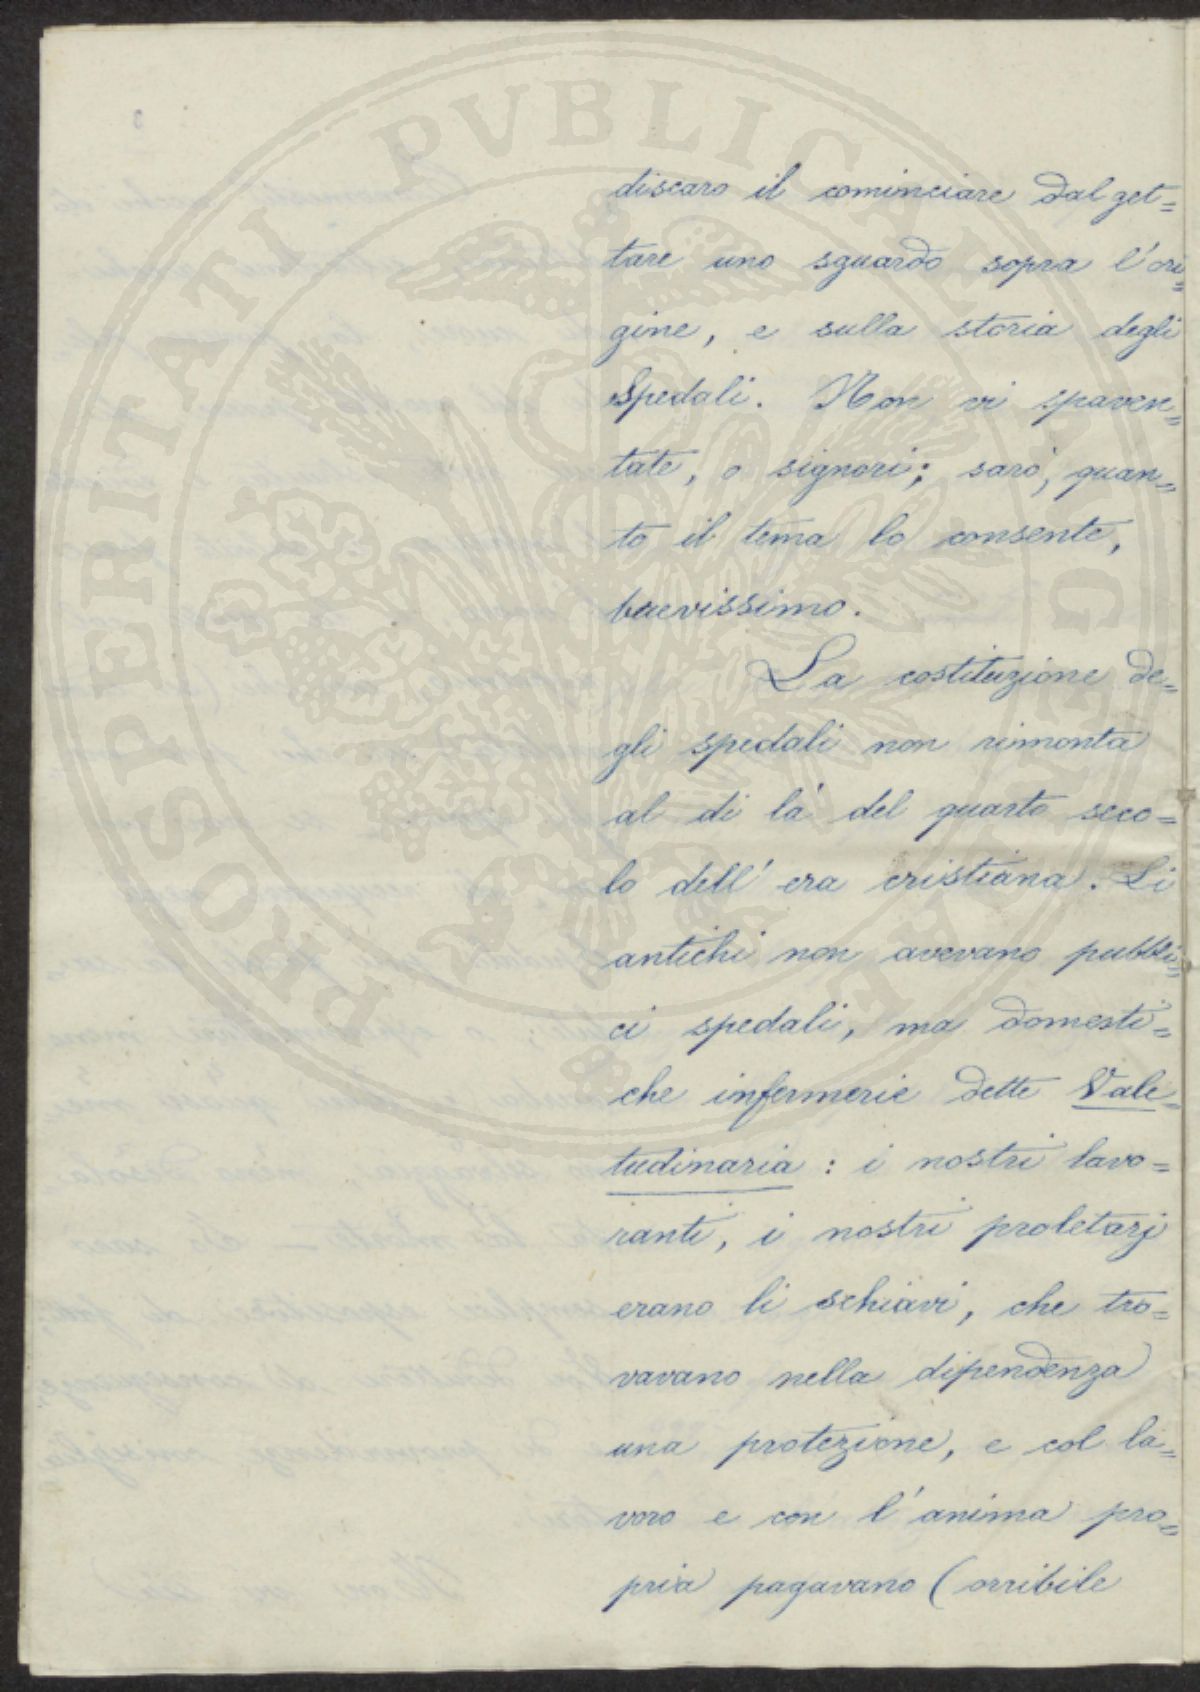 discaro il cominciare dal get=
tare uno sguardo sopra l'ori=
gine, e sulla storia degli
Spedali. Non vi spaven=
tate, o signori; sarò, quan=
to il tema lo consente,
brevissimo.
La costituzione de=
gli spedali non rimonta
al di là del quarto seco=
lo dell'era cristiana. Li
antichi non avevano pubbli=
ci spedali, ma domesti=
che infermerie dette Vale=
tudinaria: i nostri lavo=
ranti, i nostri proletarj
erano li schiavi, che tro=
vavano nella dipendenza
una protezione, e col la=
voro e con l'anima pro=
pria pagavano (orribile
PROSPERITATI PVBLICAE AVGENDAE